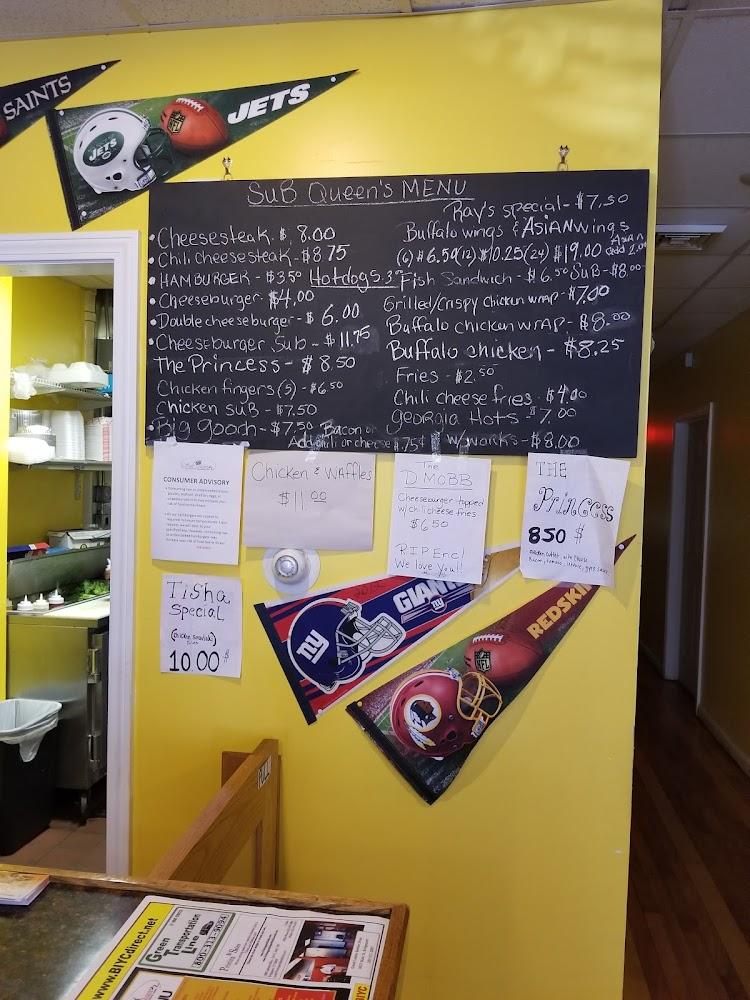 SAINTS
JETS
JETS
NFL
SUB QUEEN'S MENU
Cheesesteak. $ 8.00
Chili cheesesteak - $8.75
HAMBURGER - $3.50 Hotdogs
Cheeseburger - $4.00
Double cheeseburger - $ 6.00
Cheeseburger Sub - $ 11.75
The Princess - $ 8.50
Chicken fingers (5) - $6.50
Chicken sub - $7.50
Big gooch - $7.50 Bacon or
Add chili or cheese $.75¢
Ray's special - $7.50
Buffalo wings & ASIAN wings
(6) $6.50 (12) $10.25 (24) $19.00 ASIAN add 2.00
Fish Sandwich - $6.50 SUB - $8.00
Grilled/Crispy chicken wrap - $7.00
Buffalo chicken wrap - $8.00
Buffalo chicken - $8.25
Fries - $2.50
Chili cheese fries - $4.00
Georgia Hots - $7.00
w/works - $8.00
CONSUMER ADVISORY
Chicken & Waffles
$11.00
The
D. MOBB
Cheeseburger topped
w/chili cheese fries
$6.50
R.I.P Eric!
We love you!!
THE
Princess
850 $
Bacon, tomato, lettuce,
Tisha
Special
1000 $
GIANTS
ny
ny
REDSKINS
NFL
www.BIYCdirect.net
Green
Transportation
Line
800-313-9094
BIYC